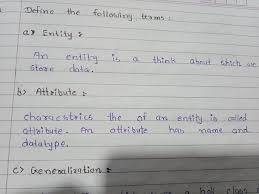 Define the following terms :
a) Entity :
An entity is a think about which we
store data.
b) Attribute :
charaestrics the of an entity is called
attribute. An attribute has name and
datatype.
c) Generalization :
a